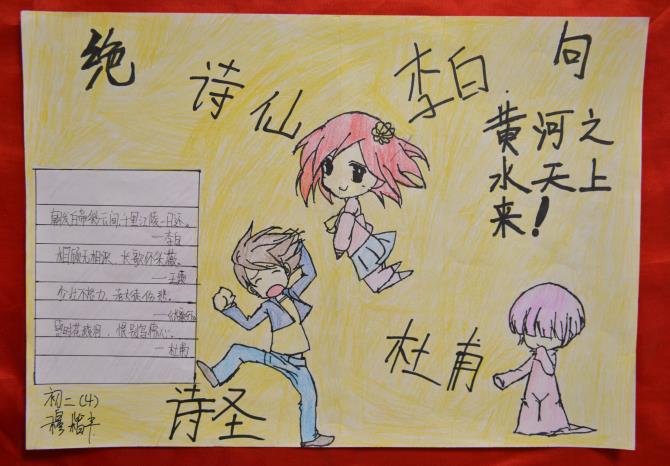 绝 句
诗仙 李白
黄河之
水天上
来!
朝辞白帝彩云间,千里江陵一日还。
—李白
相顾无相识,长歌怀采薇。
—王绩
少壮不努力,老大徒伤悲。
感时花溅泪,恨别鸟惊心。
—杜甫
杜甫
诗圣
初二(4)